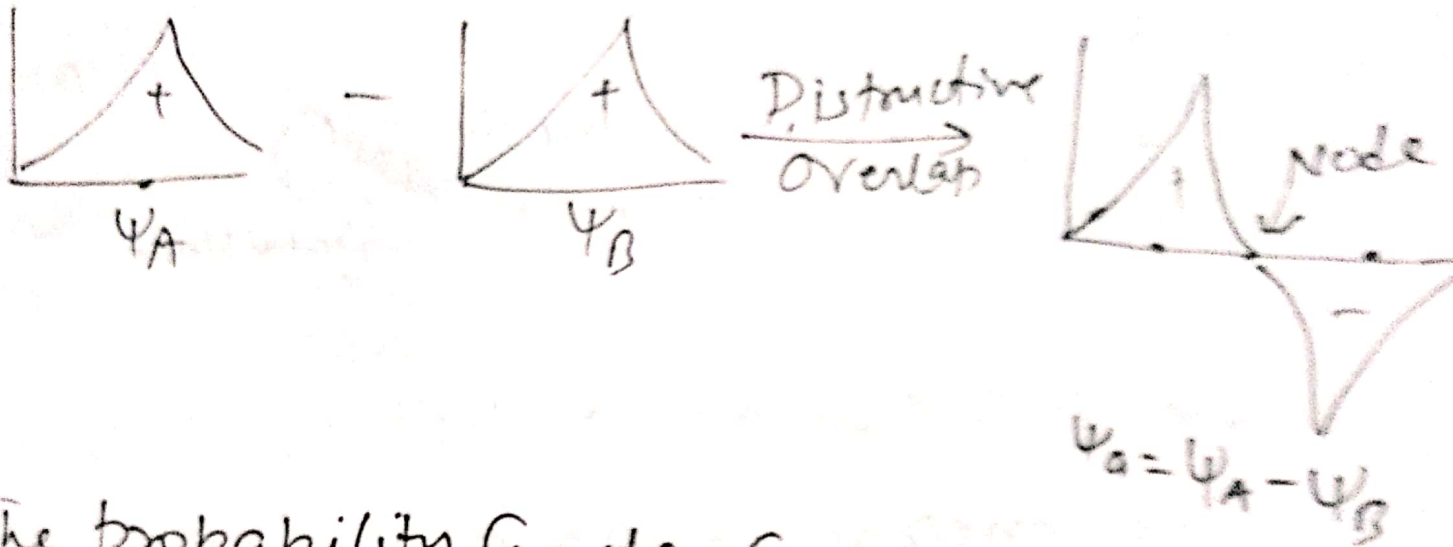 + − + Distructive
Overlap
Node
+
−
ΨA ΨB
Ψa = ΨA − ΨB
The probability